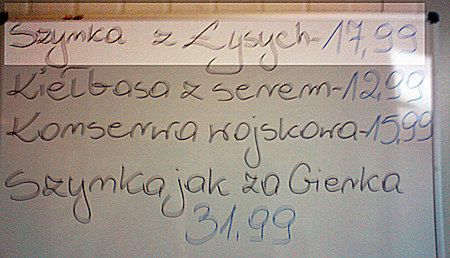 Szynka z Łysych-17,99
Kiełbasa z serem-12,99
Konserwa wojskowa-15,99
Szynka, jak za Gierka
31.99